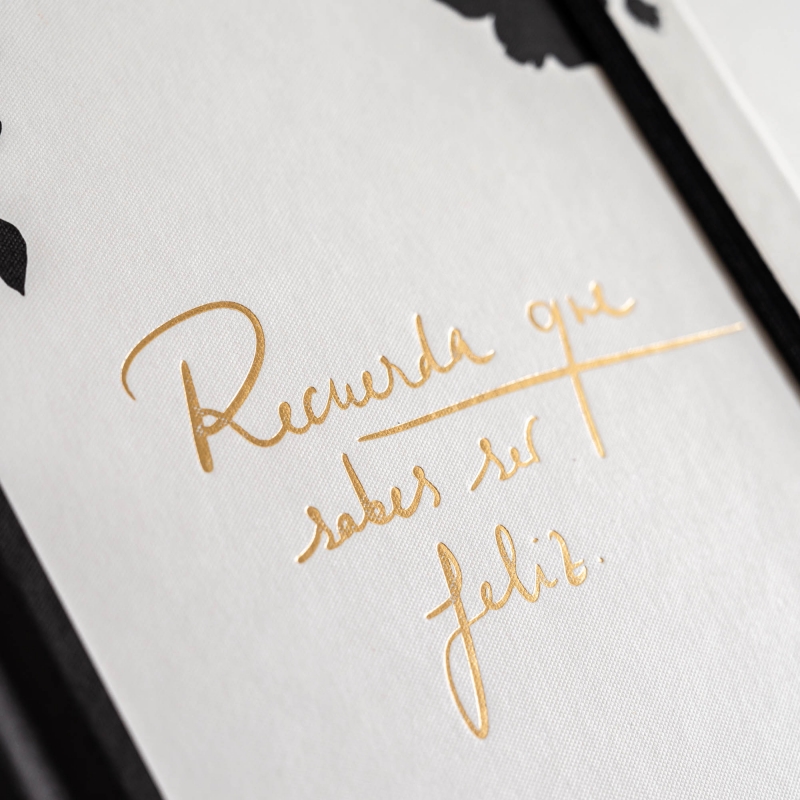 Recuerda que
sabes ser
feliz.